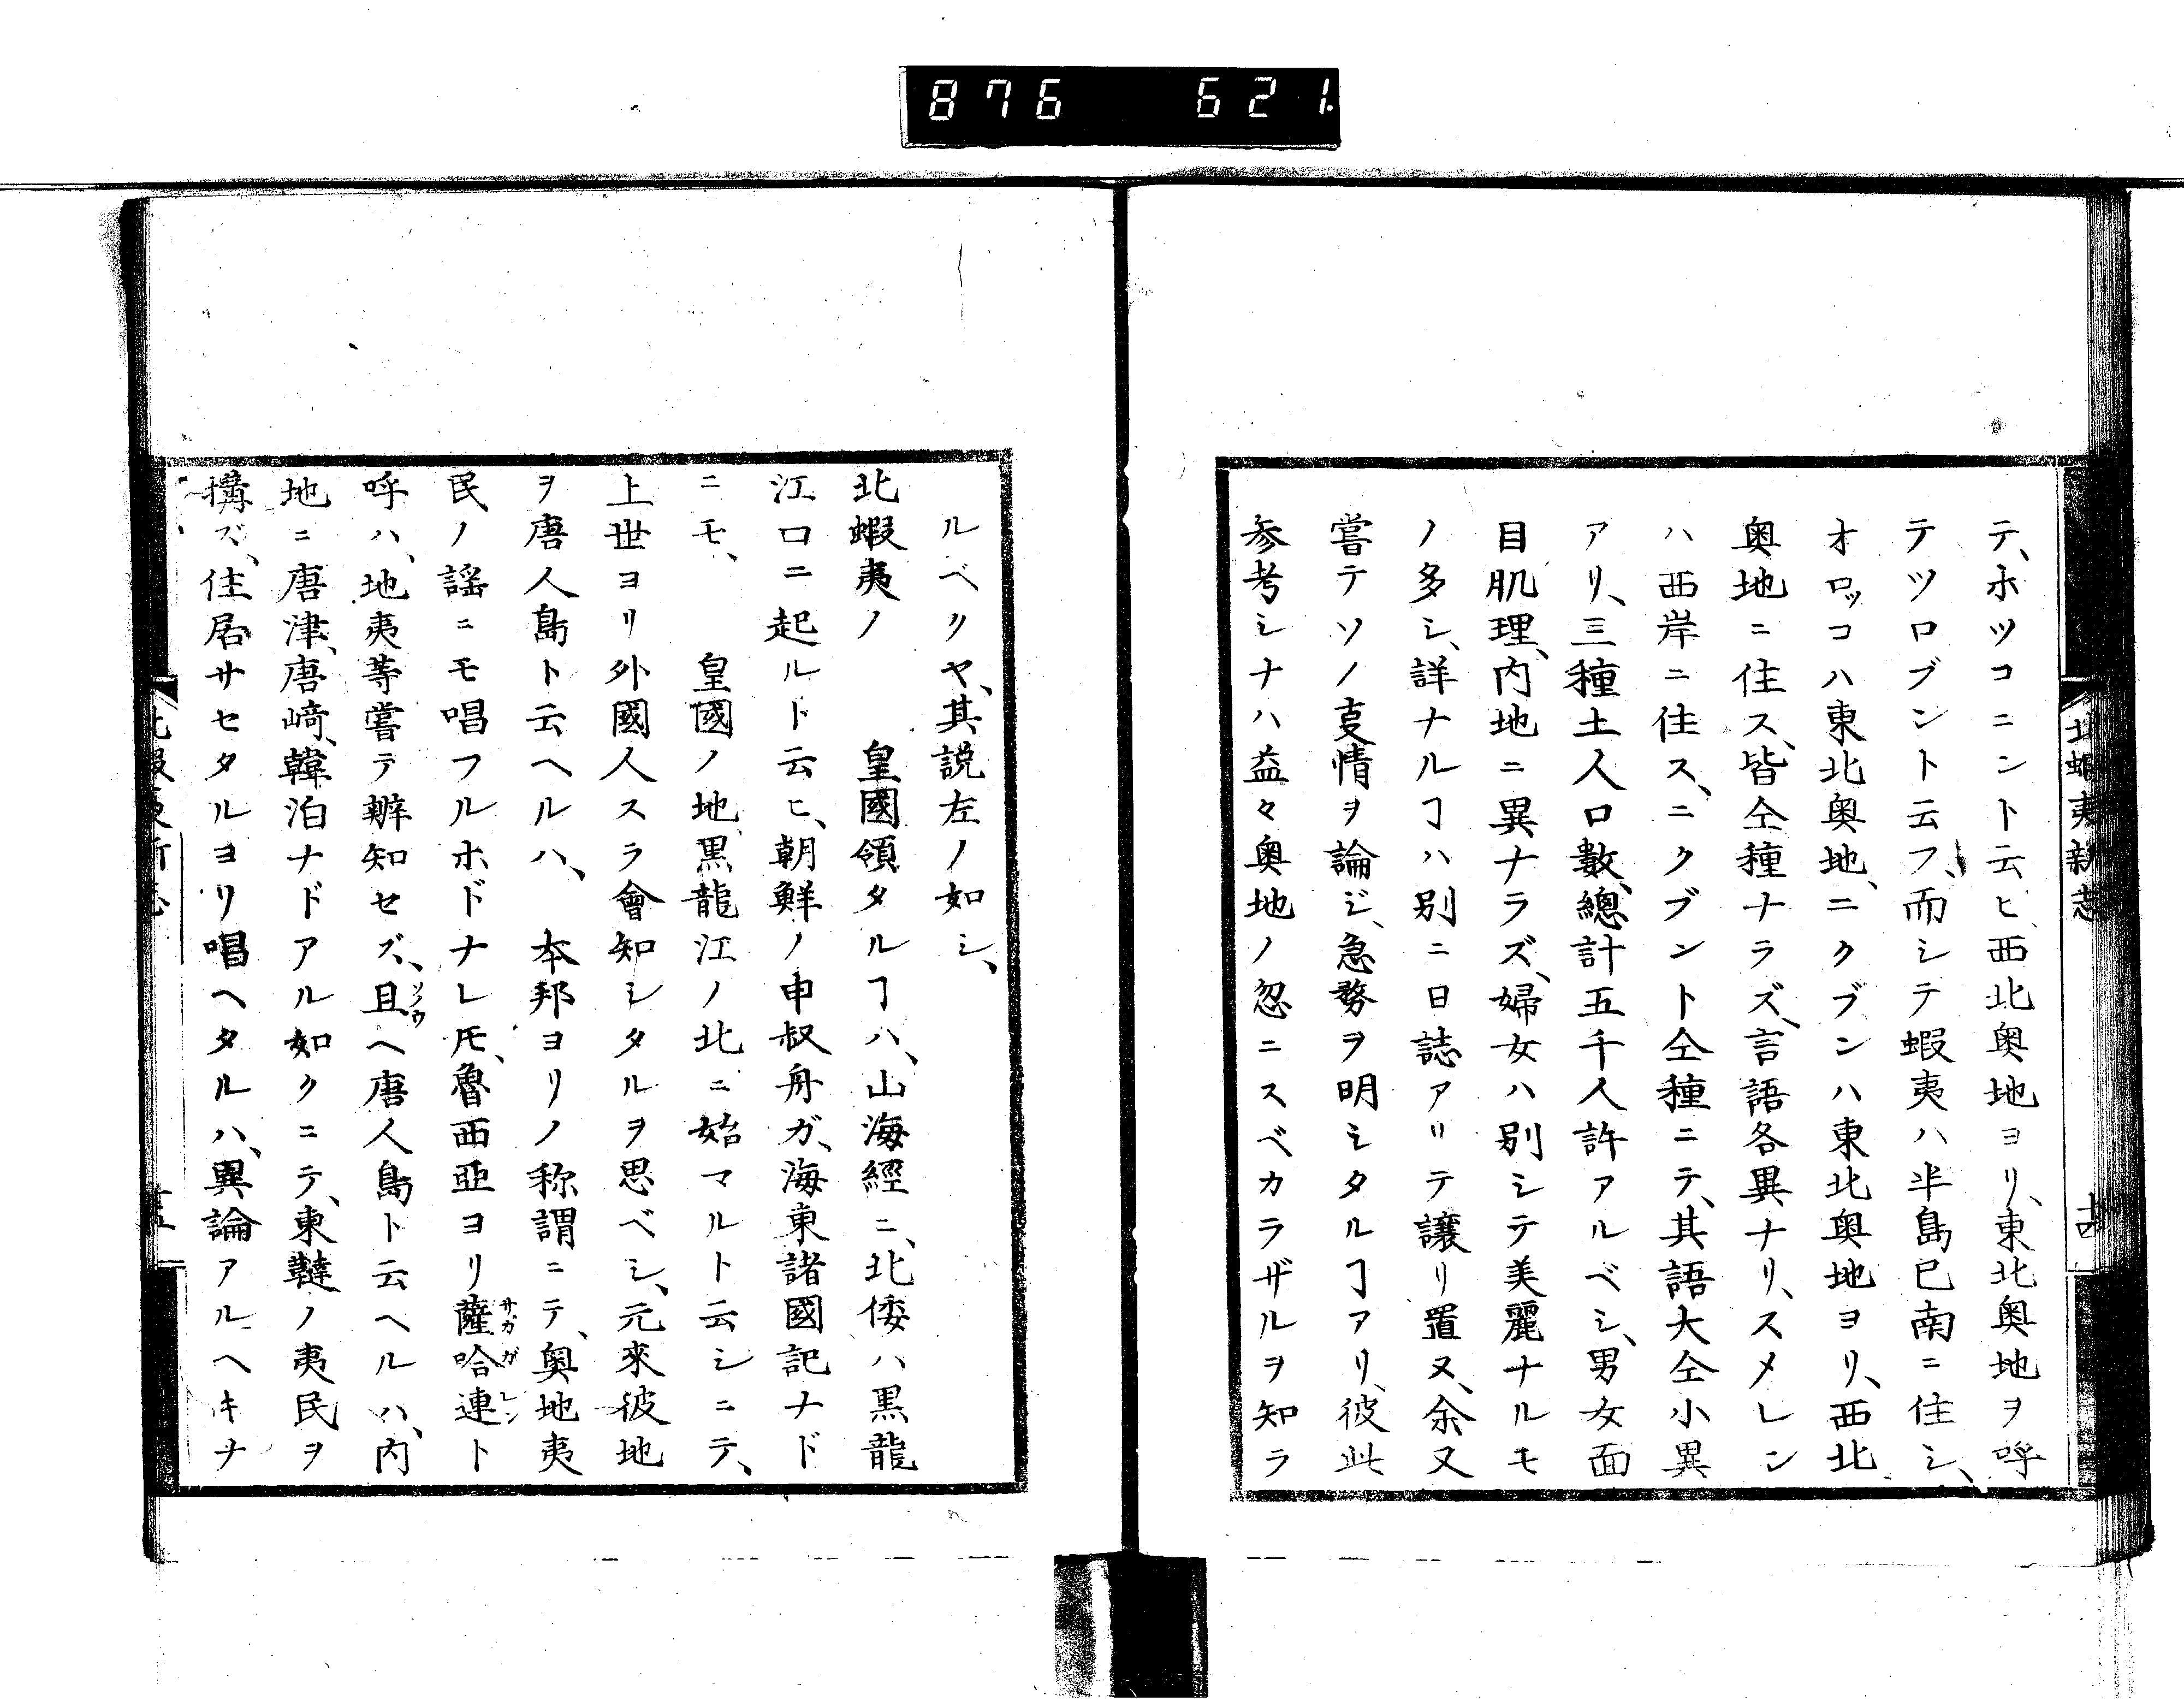 876 621
北蝦夷新志
テ、ホツコニント云ヒ、西北奥地ヨリ、東北奥地ヲ呼
テツロブント云フ、而シテ蝦夷ハ半島已南ニ住シ、
オロッコハ東北奥地、ニクブンハ東北奥地ヨリ、西北
奥地ニ住ス、皆仝種ナラズ、言語各異ナリ、スメレン
ハ西岸ニ住ス、ニクブント仝種ニテ、其語大仝小異
アリ、三種土人口數、總計五千人許アルベシ、男女面
目肌理、内地ニ異ナラズ、婦女ハ別シテ美麗ナルモ
ノ多シ、詳ナルヿハ別ニ日誌アリテ譲リ置ヌ、余又
嘗テソノ叓情ヲ論ジ、急務ヲ明シタルヿアリ、彼此
参考シナハ益々奥地ノ忽ニスベカラザルヲ知ラ
ルベクヤ、其説左ノ如シ、
北蝦夷ノ　皇國領タルヿハ、山海經ニ、北倭ハ黒龍
江口ニ起ルド云ヒ、朝鮮ノ申叔舟ガ、海東諸國記ナド
ニモ、　皇國ノ地、黒龍江ノ北ニ始マルト云シニテ、
上世ヨリ外國人スラ會知シタルヲ思ベシ、元來彼地
ヲ唐人島ト云ヘルハ、　本邦ヨリノ称謂ニテ、奥地夷
民ノ謡ニモ唱フルホドナレ𪜈、魯西亞ヨリ薩哈連ト
サガガレン
呼ハ、地夷等嘗テ辨知セズ、且ヘ唐人島ト云ヘルハ、内
地ニ唐津、唐﨑、韓泊ナドアル如クニテ、東韃ノ夷民ヲ
搆ズ、住居サセタルヨリ唱ヘタルハ、異論アルヘキナ